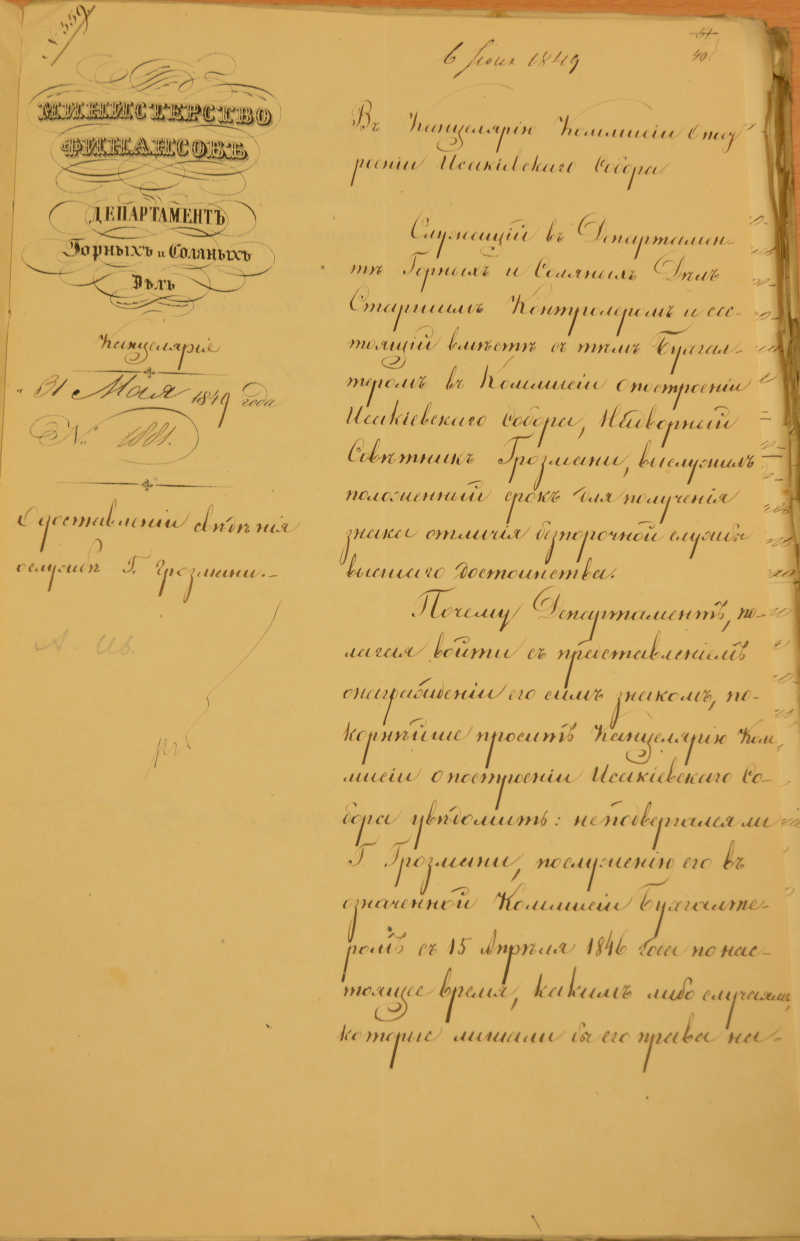 № 359
МИНИСТЕРСТВО
ФИНАНСОВЪ
ДЕПАРТАМЕНТЪ
Горныхъ и Соляныхъ
Дѣлъ
Канцелярія
31 Мая 1849 года
№ 1881.
О доставленіи свѣдѣнія
о службѣ Г. Грозмани.
6 Іюня 1849
51
40
Въ Канцелярію Коммисіи о пост
роеніи Исакіевскаго Собора
Служащій въ Департамен-
тѣ Горныхъ и Соляныхъ Дѣлъ
Старшимъ Контролеромъ и сос-
тоящій вмѣстѣ съ тѣмъ Бухгал-
теромъ въ Коммисіи о построеніи
Исакіевскаго Собора, Надворный
Совѣтникъ Грозмани, выслужилъ
положенный срокъ для полученія
знака отличія безпорочной службы
высшаго достоинства.
Почему Департаментъ, по-
лагая войти съ представленіемъ
о награжденіи его симъ знакомъ, по-
корнѣйше проситъ Канцелярію Ком
мисіи о построеніи Исакіевскаго Со-
бора увѣдомить: не подвергался ли
Г. Грозмани, по служенію его въ
означенной Коммисіи Бухгалте-
ромъ съ 15 Апрѣля 1846 года по нас-
тоящее время, какимъ либо случаямъ
которые лишали бъ его права на